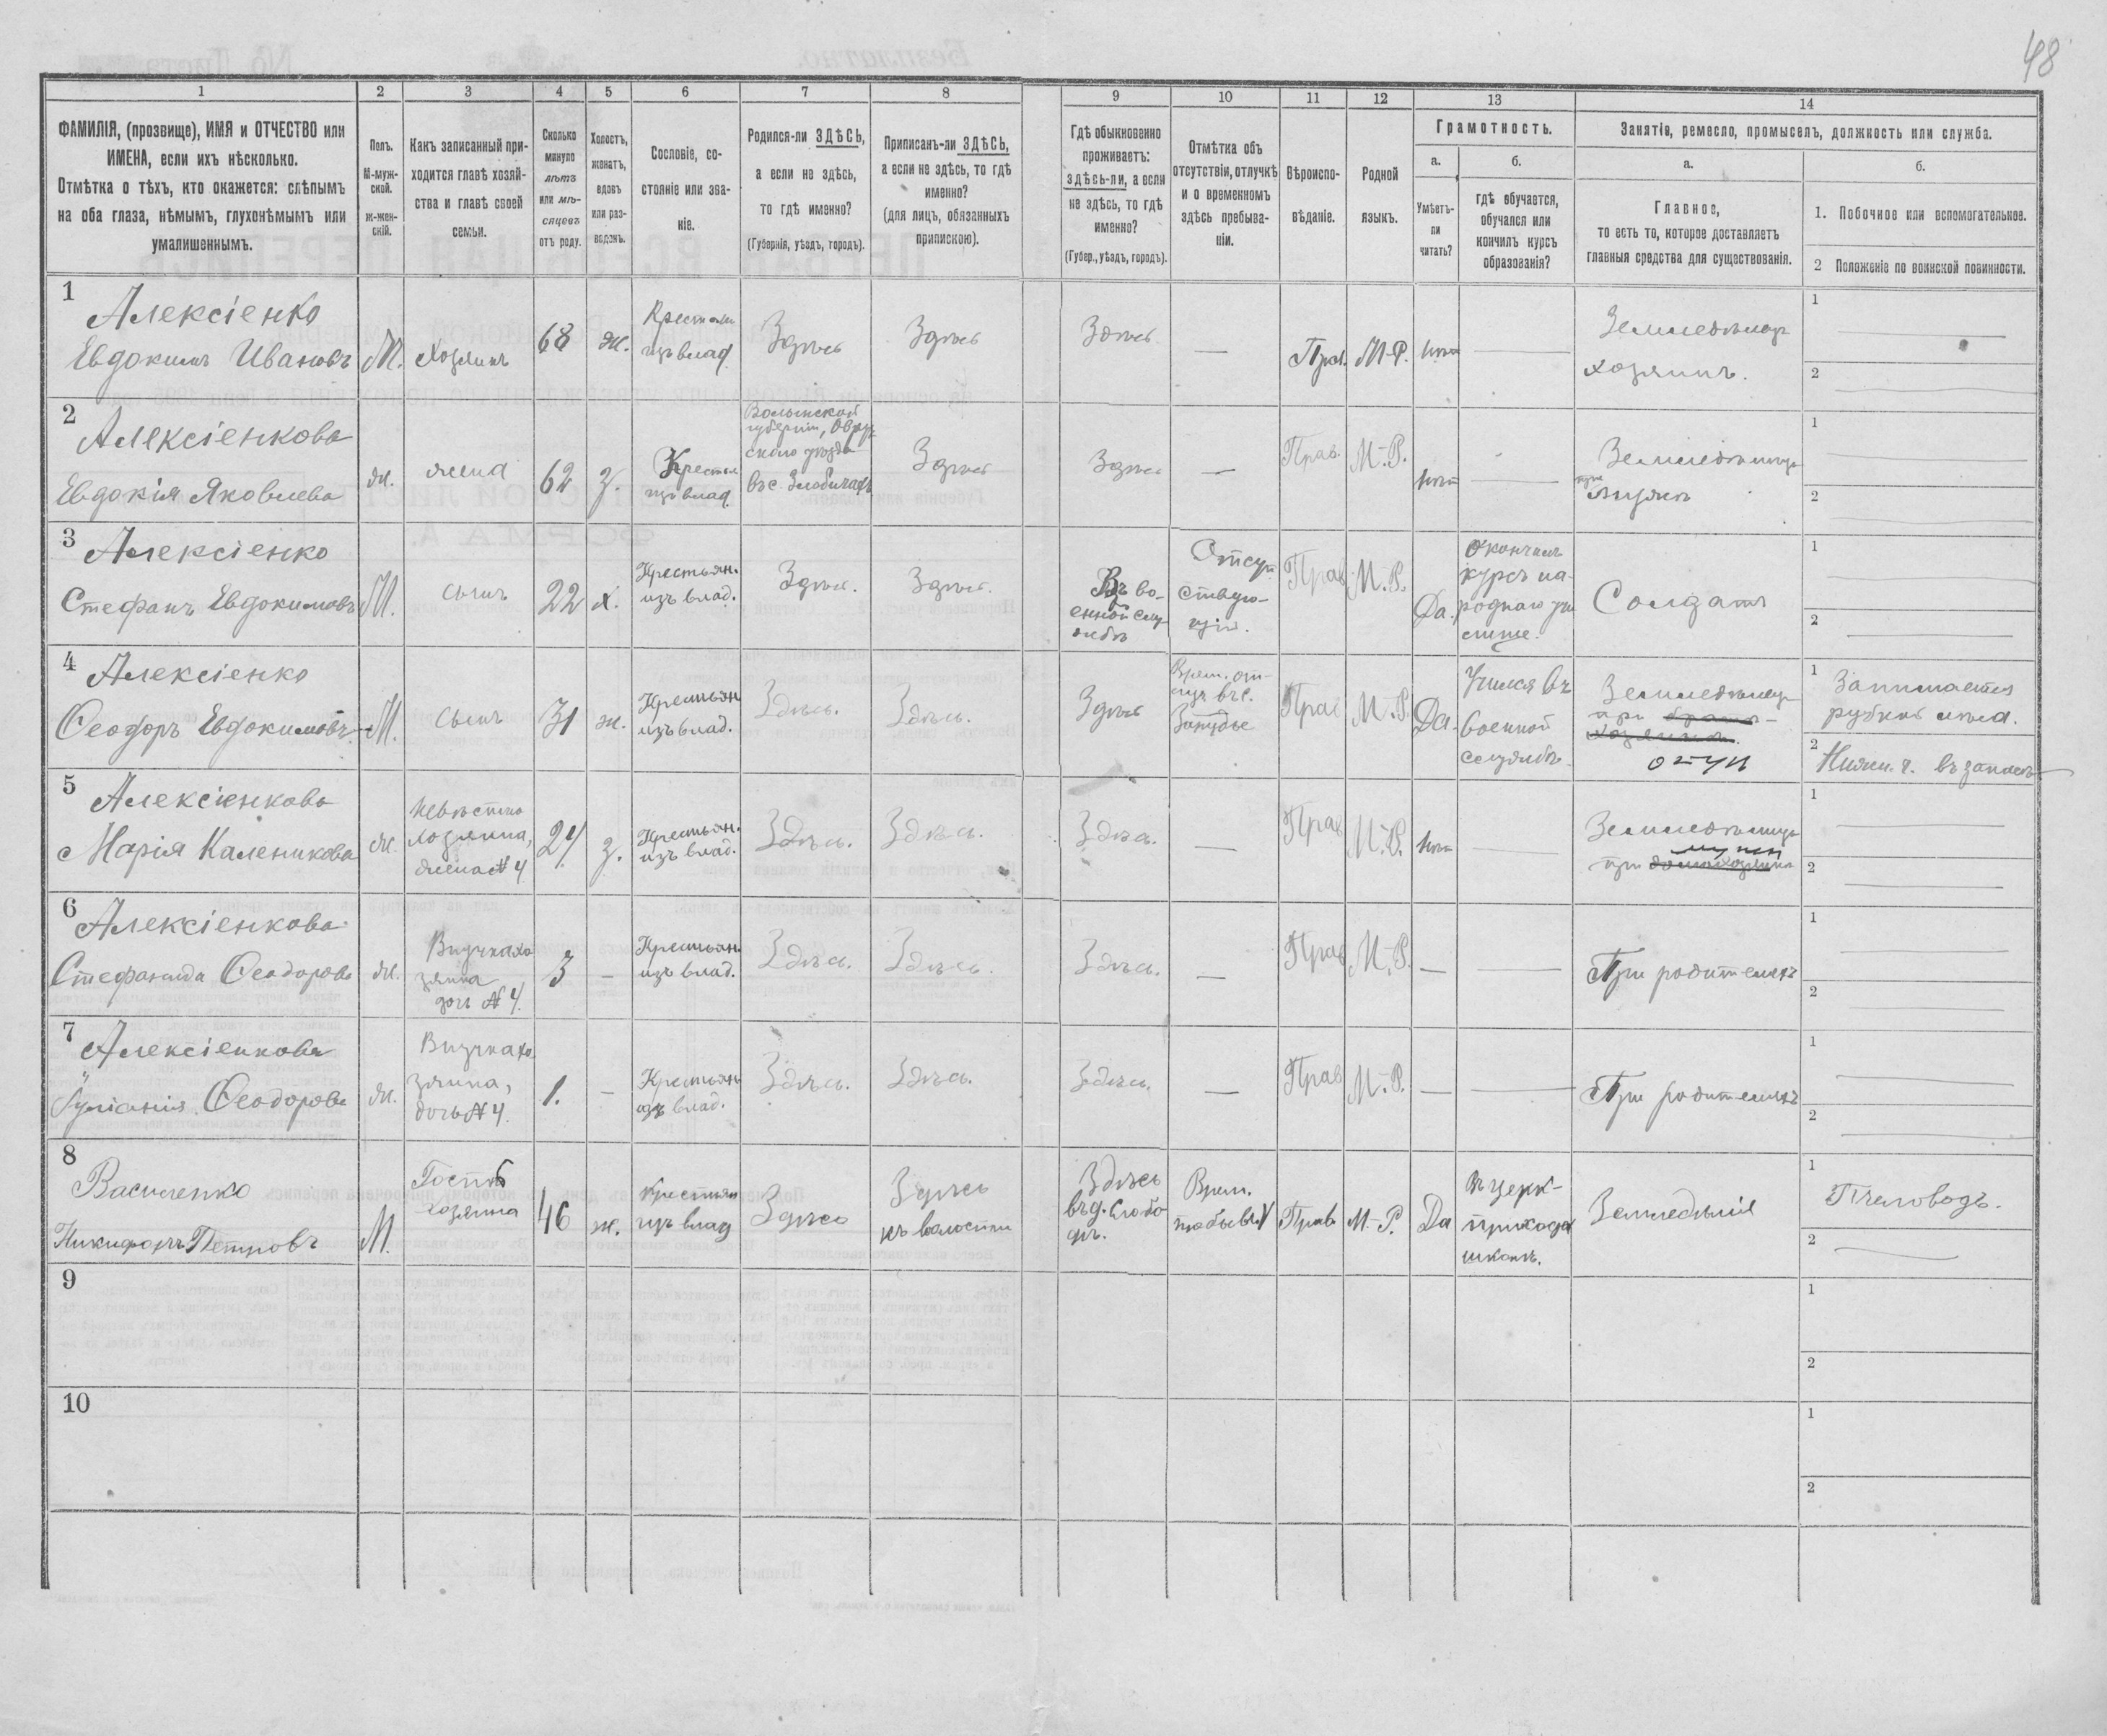 48
1 2 3 4 5 6 7 8 9 10 11 12 13 14
ФАМИЛІЯ, (прозвище), ИМЯ и ОТЧЕСТВО или
ИМЕНА, если ихъ нѣсколько.
Отмѣтка о тѣхъ, кто окажется: слѣпымъ
на оба глаза, нѣмымъ, глухонѣмымъ или
умалишеннымъ.
Полъ.
М-муж-
ской.
ж-жен-
скій.
Какъ записанный при-
ходится главѣ хозяй-
ства и главѣ своей
семьи.
Сколько
минуло
лѣтъ
или мѣ-
сяцевъ
отъ роду.
Холостъ,
женатъ,
вдовъ
или раз-
веденъ.
Сословіе, со-
стояніе или зва-
ніе.
Родился-ли ЗДѢСЬ,
а если не здѣсь,
то гдѣ именно?
(Губернія, уѣздъ, городъ).
Приписанъ-ли ЗДѢСЬ,
а если не здѣсь, то гдѣ
именно?
(для лицъ, обязанныхъ
припискою).
Гдѣ обыкновенно
проживаетъ:
здѣсь-ли, а если
не здѣсь, то гдѣ
именно?
(Губер., уѣздъ, городъ).
Отмѣтка объ
отсутствіи, отлучкѣ
и о временномъ
здѣсь пребыва-
ніи.
Вѣроиспо-
вѣданіе.
Родной
языкъ.
Грамотность.
а.
Умѣетъ-
ли
читать?
б.
гдѣ обучается,
обучался или
кончилъ курсъ
образованія?
Занятіе, ремесло, промыселъ, должность или служба.
а.
Главное,
то есть то, которое доставляетъ
главныя средства для существованія.
б.
1. Побочное или вспомогательное.
2 Положеніе по воинской повинности.
1
Алексіенко
Евдокимъ Ивановъ
М.
Хозяинъ
68
ж.
Крестьян
изъ влад.
Здѣсь
Здѣсь
Здѣсь
—
Прав.
М-Р.
Нѣтъ
—
Земледѣлецъ
хозяинъ.
1
2
2
Алексіенкова
Евдокія Яковлева
ж.
жена
62
з.
Крестьян
изъ влад.
Волынской
губерніи, Овруч
скаго уѣзда
въ с. Злобичахъ
Здѣсь
Здѣсь
—
Прав.
М.-Р.
Нѣтъ
—
при
мужѣ
1
2
3
Алексіенко
Стефанъ Евдокимовъ
М.
Сынъ
22
х.
Крестьян.
изъ влад.
Здѣсь.
Здѣсь.
Въ во-
енной слу-
жбѣ
Отсут
ствую-
щій.
Прав
М.-Р.
Да.
Окончилъ
курсъ на-
роднаго учи
лища.
Солдатъ
1
2
4
Алексіенко
Ѳеодоръ Евдокимовъ
М.
Сынъ
31
ж.
Крестьян
изъ влад.
Здѣсь.
Здѣсь.
Здѣсь
Врем. от-
луч. въ с.
Прав
М.-Р.
Да.
Учился въ
военной
службѣ.
Земледѣлецъ
при
хозяинѣ.
отцѣ
1
Занимается
рубкой лѣса.
2
Нижн. ч. въ запасѣ
5
Алексіенкова
Марія Каленикова
ж.
Невѣстка
хозяина,
жена № 4
24
з.
Крестьян.
изъ влад.
Здѣсь.
Здѣсь.
Здѣсь.
—
Прав
М.-Р.
Нѣтъ
—
мужѣ
при домохозяинѣ
1
2
6
Алексіенкова
Стефанида Ѳеодорова
ж.
Внучка хо
зяина
дочь № 4.
3
–
Крестьян.
изъ влад.
Здѣсь.
Здѣсь.
Здѣсь.
—
Прав
М.-Р.
—
—
При родителяхъ
1
2
7
Алексіенкова
Іуліанія Ѳеодорова
ж.
Внучка хо
зяина,
дочь № 4.
1.
–
Крестьян
изъ влад.
Здѣсь.
Здѣсь.
Здѣсь.
—
Прав
М.-Р.
—
—
При родителяхъ
1
2
8
Василенко
Никифоръ Петровъ
М.
Гость
хозяина
46
ж.
Крестьян
изъ влад
Здѣсь
Здѣсь
къ волости
Здѣсь
въ д. Слобо
дѣ.
Врем.
Прав
М.-Р.
Да
Въ церк-
приход
школѣ.
Земледѣлія
1
Пчеловодъ.
2
9
1
2
10
1
2